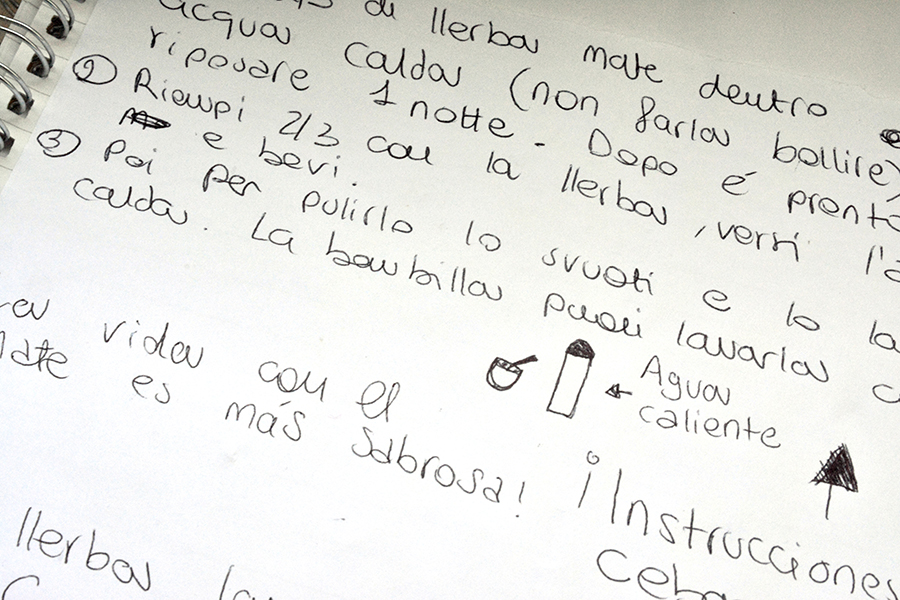 di llerba mate dentro
acqua calda (non farla bollire)
riposare 1 notte. Dopo é
② Riempi 2/3 con la llerba, versi
e bevi.
③ Poi per pulirlo lo svuoti e lo
calda. La bombilla puoi lavarla
vida con el
es más sabrosa!
Agua
caliente
¡Instrucciones
llerba